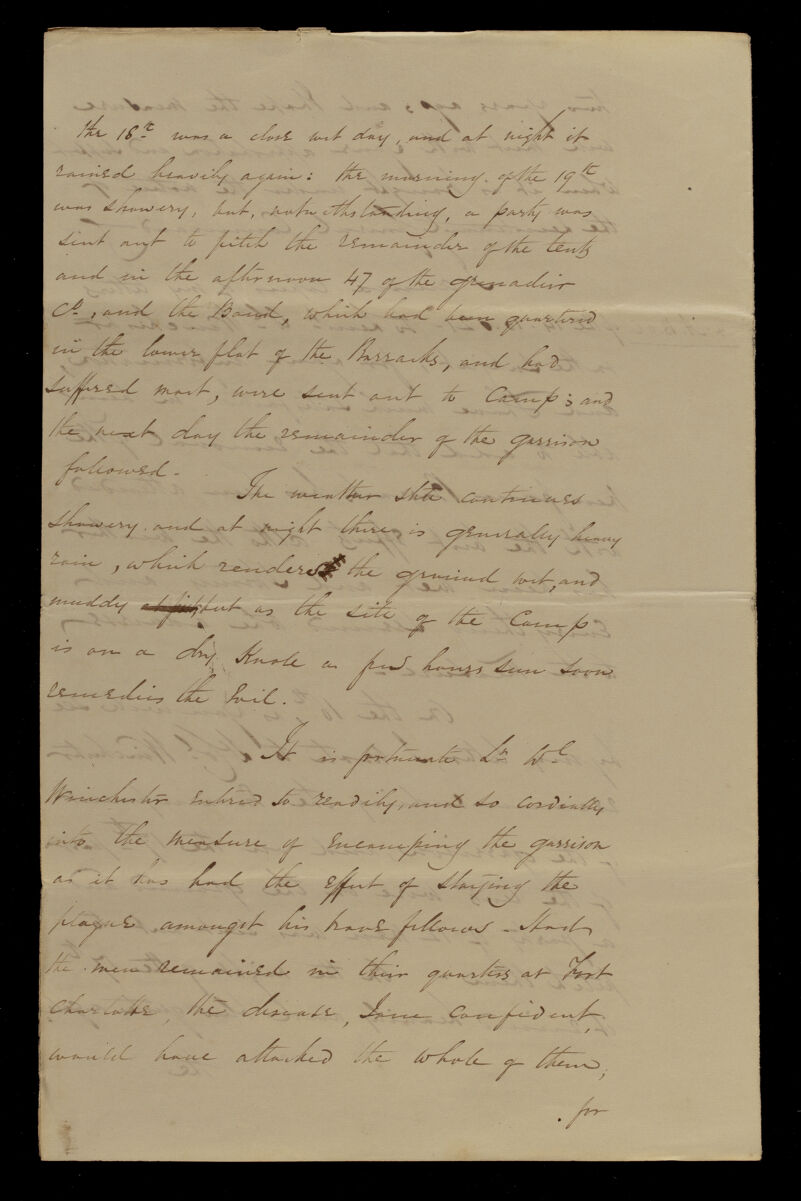 the 18th was a close wet day, and at night it
rained heavily again: the morning of the 19th
was showery, but, notwithstanding, a party was
sent out to pitch the remainder of the tents
and in the afternoon 47 of the grenadier
Co, and the Band, which had been quartered
in the lower flat of the Barracks, and had
suffered most, were sent out to Camp; and
the next day the remainder of the garrison
followed.
The weather still continues
showery and at night there is generally heavy
rain, which renders the ground wet, and
muddy but as the site of the Camp
is on a dry Knole a few hours sun soon
remedies the Evil.
It is fortunate Lt Col
Winchester entered so readily, and so cordially
into the measure of Encamping the garrison
as it has had the effect of staying the
plague amongst his brave fellows - Had
the men remained in their quarters at Fort
Charlotte, the disease, I am confident,
would have attacked the whole of them,
for